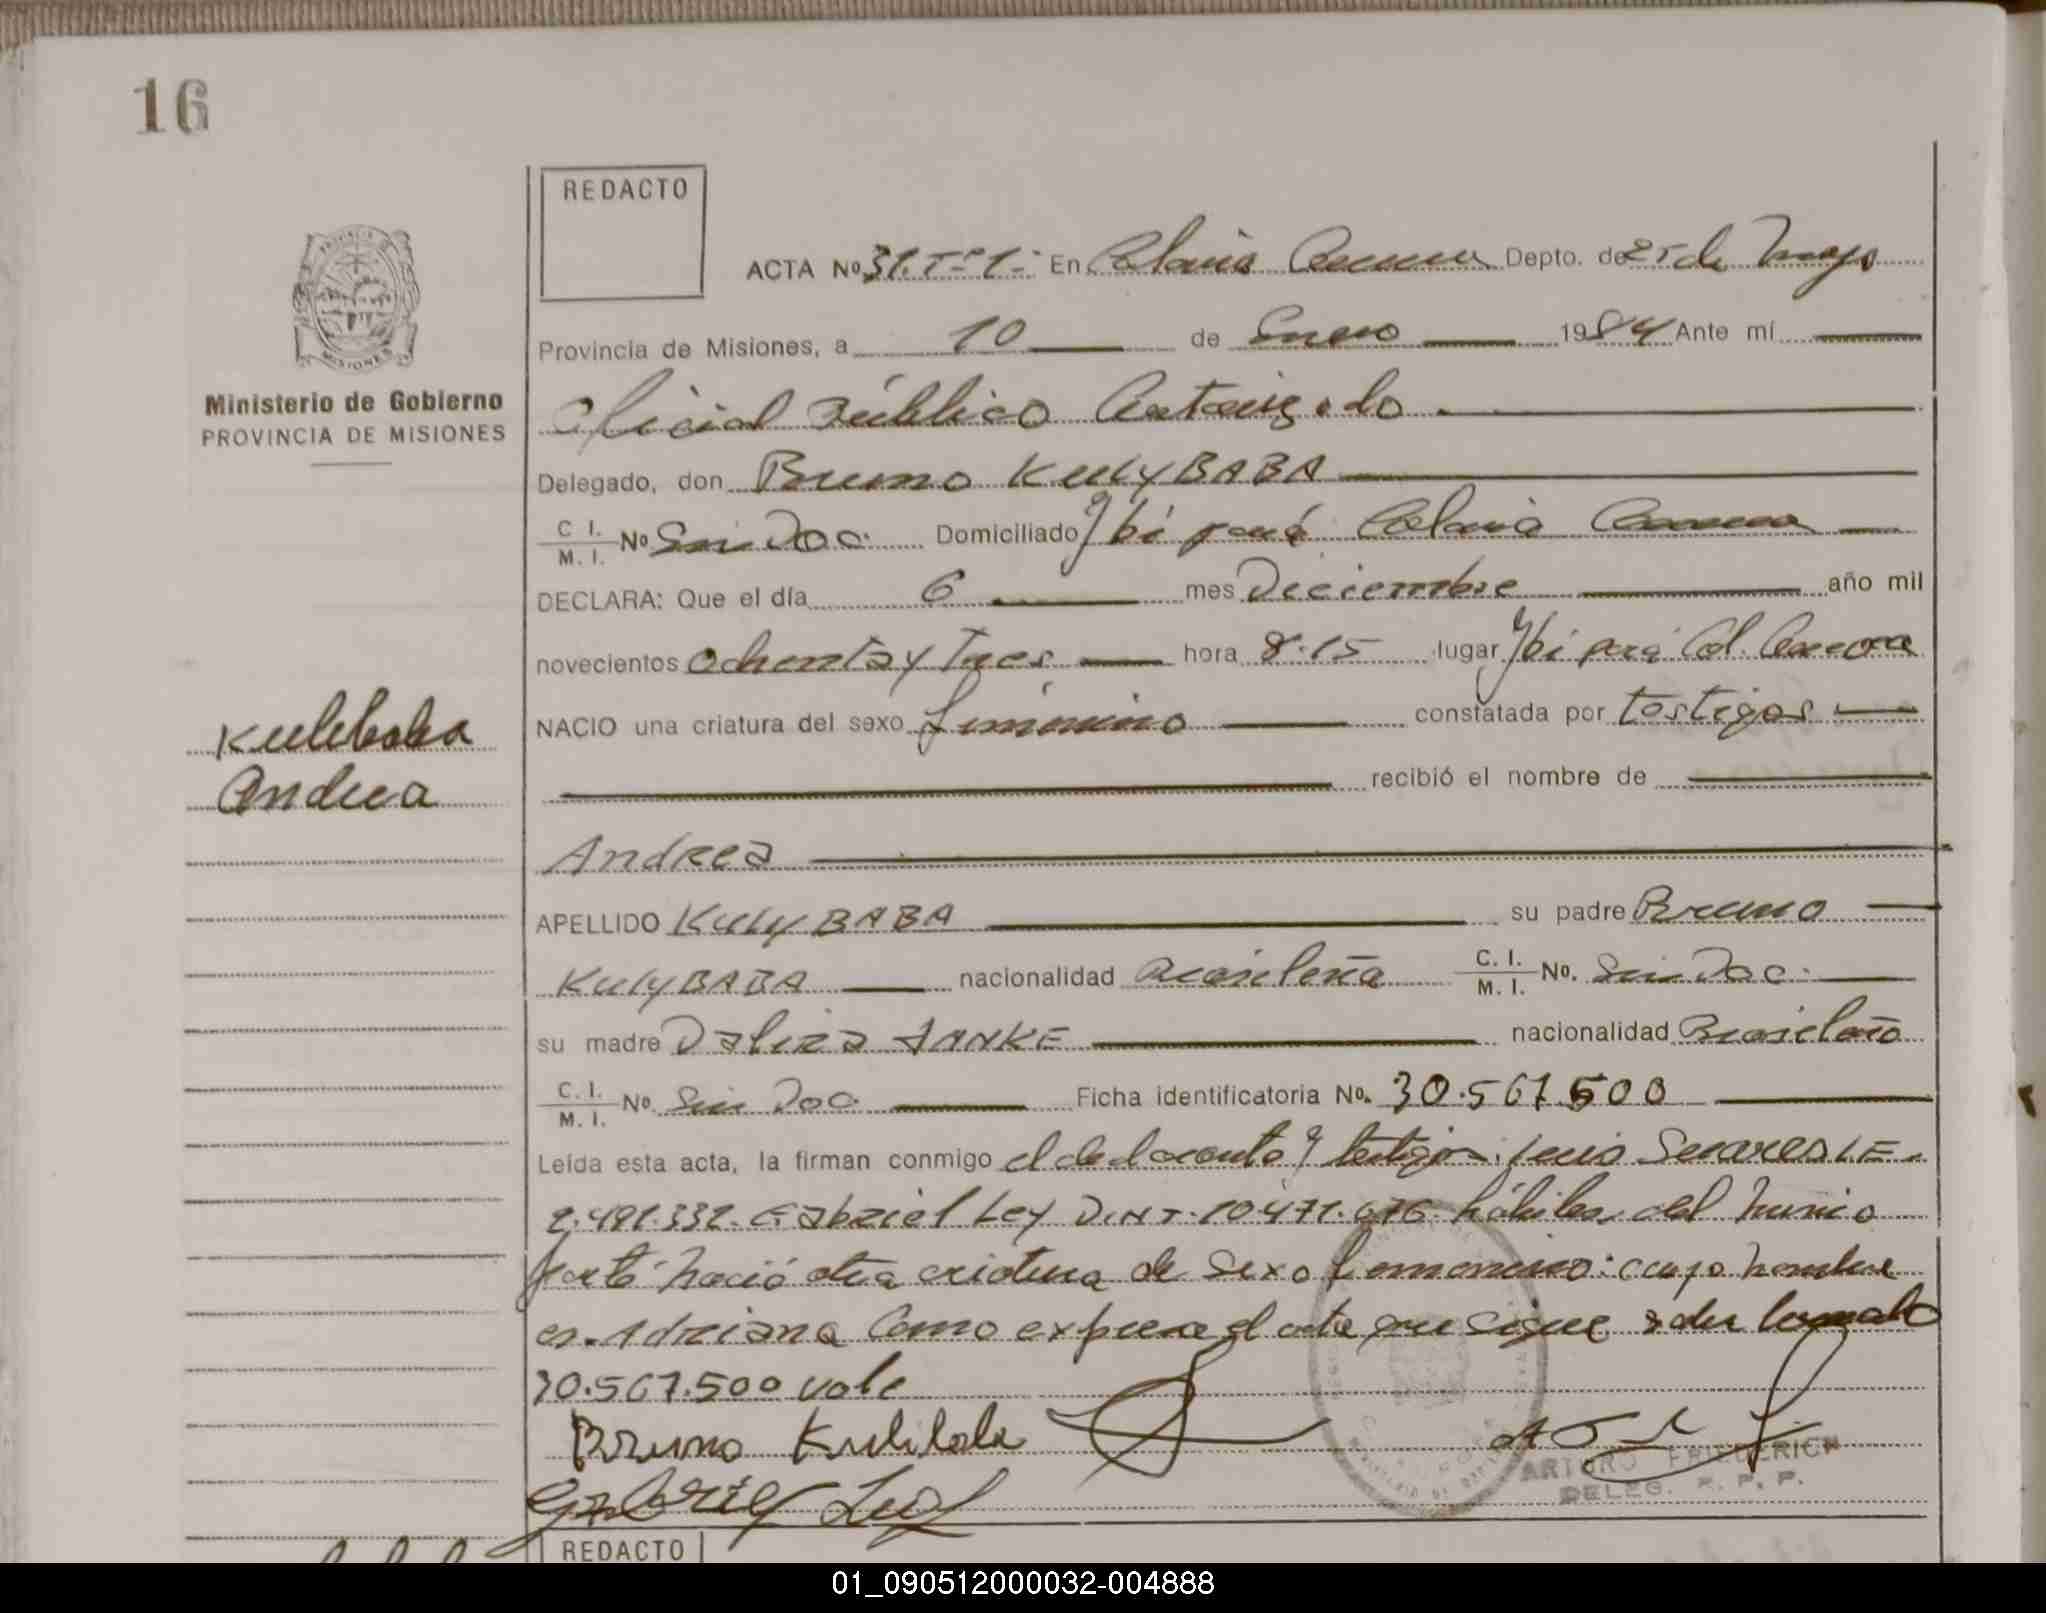 16
REDACTO
ACTA No 31. Tº 1.- En Colonia Aurora Depto. de 25 de Mayo
Provincia de Misiones, a 10 de Enero 1984 Ante mí
Ministerio de Gobierno
PROVINCIA DE MISIONES
Oficial Público Autorizado
Delegado, don Bruno KULYBABA
C. I. M. I. No Sin Doc. Domiciliado Ybi pora Colonia Aurora
DECLARA: Que el día 6 mes Diciembre año mil
novecientos Ochenta y Tres hora 8.15 lugar Ybi pora Col. Aurora
NACIO una criatura del sexo femenino constatada por testigos
Kulibaba
Andrea
recibió el nombre de
Andrea
APELLIDO KULYBABA su padre Bruno
KULYBABA nacionalidad Brasileña C. I. M. I. No. Sin Doc.
su madre Daliza JANKE nacionalidad Brasileña
C. I. M. I. No. Sin Doc. Ficha identificatoria No. 30.567.500
Leída esta acta, la firman conmigo el declarante y testigos: Luis Suares LE.
Gabriel Ley D.N.I. 10.471.676 hábiles. del mismo
parto nació otra criatura de sexo femenino: cuyo nombre
es. Adriana Como expresa el acta que sigue
30.567.500 vale
Bruno Kulibaba
ARTURO FRIEDERICH
DELEG. R. P. P.
Gabriel
REDACTO
01_090512000032-004888